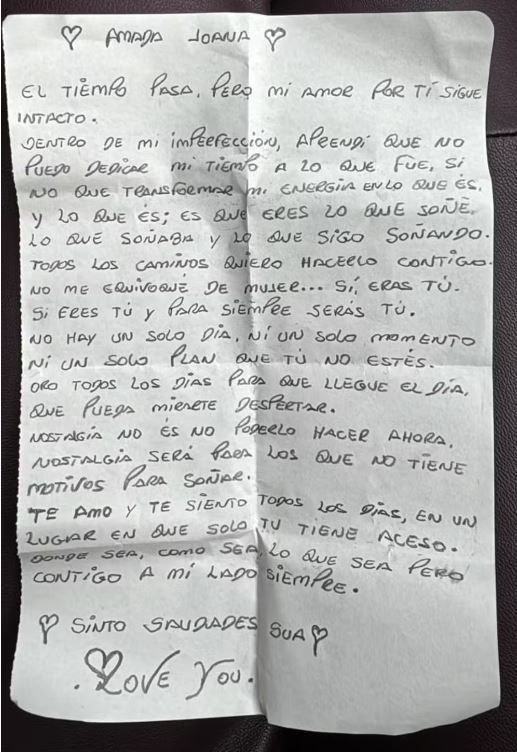 ♡ AMADA JOANA ♡
EL TIEMPO PASA, PERO MI AMOR POR TÍ SIGUE
INTACTO.
DENTRO DE MI IMPERFECCIÓN, APRENDÍ QUE NO
PUEDO DEDICAR MI TIEMPO A LO QUE FUE, SI
NO QUE TRANSFORMAR MI ENERGIA EN LO QUE ÉS,
Y LO QUE ÉS; ES QUE ERES LO QUE SOÑÉ,
LO QUE SOÑABA Y LO QUE SIGO SOÑANDO.
TODOS LOS CAMINOS QUIERO HACERLO CONTIGO.
NO ME EQUIVOQUÉ DE MUJER... SÍ, ERAS TÚ.
SI ERES TÚ Y PARA SIEMPRE SERÁS TÚ.
NO HAY UN SOLO DÍA, NI UN SOLO MOMENTO
NI UN SOLO PLAN QUE TÚ NO ESTÉS.
ORO TODOS LOS DÍAS PARA QUE LLEGUE EL DÍA,
QUE PUEDA MIRARTE DESPERTAR.
NOSTALGÍA NO ÉS NO PODERLO HACER AHORA,
NOSTALGÍA SERÁ PARA LOS QUE NO TIENE
MOTIVOS PARA SOÑAR.
TE AMO Y TE SIENTO TODOS LOS DÍAS, EN UN
LUGAR EN QUE SOLO TU TIENE ACESO.
DONDE SEA, COMO SEA, LO QUE SEA PERO
CONTIGO A MI LADO SIEMPRE.
♡ SINTO SAUDADES SUA ♡
. LOVE YOU.